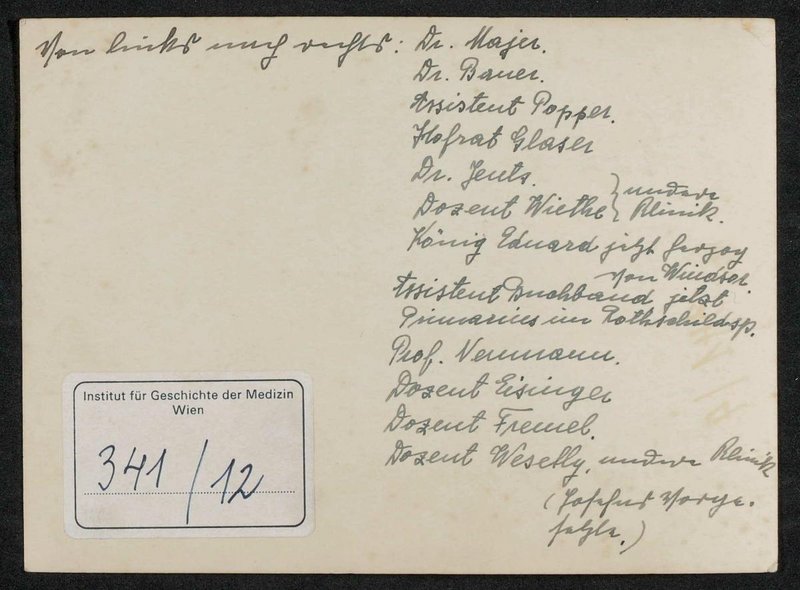 Von links nach rechts: Dr. Majer.
Dr. Bauer.
Assistent Popper.
Hofrat Glaser
Dr. Jents.
Dozent Wiethe } andere Klinik.
König Eduard jetzt Herzog
von Windsor.
Assistent Buchband jetzt
Primarius im Rothschildsp.
Prof. Neumann.
Dozent Eisinger
Dozent Fremel.
Dozent Weselly, andere Klinik
(Josefus Vorge-
setzte.)
Institut für Geschichte der Medizin
Wien
341/12